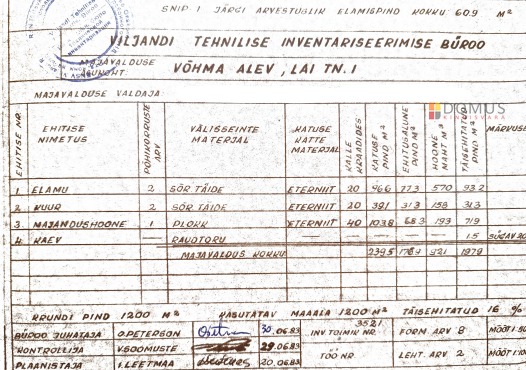 SNIP I JÄRGI ARVESTUSLIK ELAMISPIND KOKKU 60.9 M²
VILJANDI TEHNILISE INVENTARISEERIMISE BÜROO
MAJAVALDUSE
VÕHMA ALEV, LAI TN. 1
MAJAVALDUSE VALDAJA
DOMUS
KINNISVARA
EHITISE NR. EHITISE NIMETUS PÕHIKORRUSTE ARV VÄLISSEINTE MATERJAL KATUSE KATTE MATERJAL KALLE KRAADIDES KATUSE PIND M² EHITUSALUNE PIND M² HOONE MAHT M³ TÄISEHITATUD PIND M² MÄRKUSE
1. ELAMU 2 SÕR TÄIDE ETERNIIT 20 96.6 77.3 570 93.2
2. KUUR 2 SÕR TÄIDE ETERNIIT 20 39.1 31.3 158 31.3
3 MAJANDUSHOONE 1 PLOKK ETERNIIT 40 103.8 68.3 193 71.9
4 KAEV — RAUDTORU — — — — — 1.5 SÜGAV 20
MAJAVALDUS KOKKU 239.5 176.9 921 197.9
KRUNDI PIND 1200 M² KASUTATAV MAAALA 1200 M² TÄISEHITATUD 16 %
BÜROO JUHATAJA O. PETERSON 30.06.83 INV. TOIMIK NR. 3521 FORM. ARV 8 MÕÕT 1:50
KONTROLLIJA V. SOOMUSTE 29.06.83
PLAANISTAJA I. LEETMAA 20.06.83 TÖÖ NR. LEHT. ARV 2